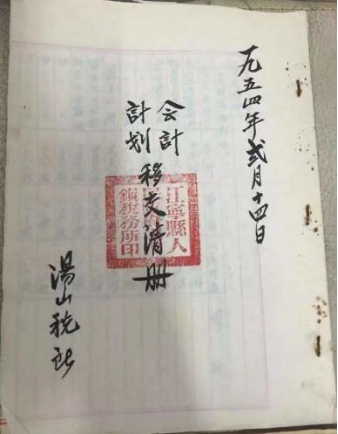 一九五四年弍月十四日
会计
計划
移交清册
江寧縣人
鎮税務所印
湯山税所